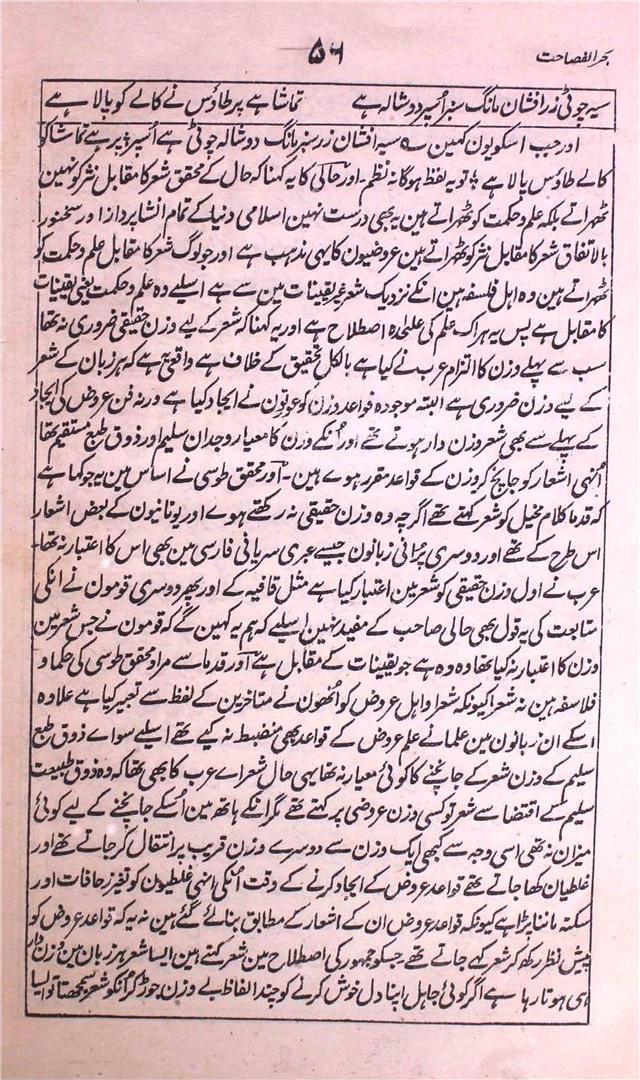 بحر الفصاحت
۵۶
سیہ چوٹی زر افشان مانگ سبز اُسپر دوشالہ ہے تماشا ہے پر طاؤس نے کالے کو پالا ہے
اور جب اسکو یون کہین سیہ افشان زر سبز مانگ دوشالہ چوٹی ہے اُسپر پر ہے تماشا کو
کالے طاؤس پالا ہے تو یہ لفظ ہوگا نہ نظم۔ اور حالی کا یہ کہنا کہ حال کے محقق شعر کا مقابل نثر کو نہین
ٹھہراتے بلکہ علم و حکمت کو ٹھہراتے ہین یہ بھی درست نہین اسلامی دنیا کے تمام انشا پرداز اور سخنور
بالاتفاق شعر کا مقابل نثر کو ٹھہراتے ہین عروضیون کا یہی مذہب ہے اور جو لوگ شعر کا مقابل علم و حکمت کو
ٹھہراتے ہین وہ اہل فلسفہ ہین انکے نزدیک شعر غیر یقینات مین سے ہے اسلیے وہ علم و حکمت یعنی یقینات
کا مقابل ہے پس یہ ہر اک علم کی علیٰحدہ اصطلاح ہے اور یہ کہنا کہ شعر کے لیے وزن حقیقی ضروری نہ تھا
سب سے پہلے وزن کا التزام عرب نے کیا ہے بالکل تحقیق کے خلاف ہے واقعی ہے کہ ہر زبان کے شعر
کے لیے وزن ضروری ہے البتہ موجودہ قواعد وزن کو عربون نے ایجاد کیا ہے ورنہ فن عروض کی ایجاد
کے پہلے سے بھی شعر وزن دار ہوتے تھے اور اُنکے وزن کا معیار وجدان سلیم اور ذوق طبع مستقیم تھا
اُنہی اشعار کو جانچ کر وزن کے قواعد مقرر ہوے ہین۔ اور محقق طوسی نے اساس مین یہ جو کہا ہے
کہ قدما کلام مخیل کو شعر کہتے تھے اگرچہ وہ وزن حقیقی نہ رکھتے ہوے اور یونانیون کے بعض اشعار
اس طرح کے تھے اور دوسری پُرانی زبانون جیسے عبری سریانی فارسی مین بھی اس کا اعتبار نہ تھا۔
عرب نے اول وزن حقیقی کو شعر مین اعتبار کیا ہے مثل قافیہ کے اور پھر دوسری قومون نے انکی
متابعت کی یہ قول بھی حالی صاحب کے مفید نہین اسلیے کہ ہم یہ کہین گے کہ قومون نے جس شعر مین
وزن کا اعتبار نہ کیا تھا وہ وہ ہے جو یقینات کے مقابل ہے اور قدما سے مراد محقق طوسی کی حکما و
فلاسفہ ہین نہ شعرا کیونکہ شعرا و اہل عروض کو اُنھون نے متاخرین کے لفظ سے تعبیر کیا ہے علاوہ
اسکے ان زبانون مین علما نے علم عروض کے قواعد بھی منضبط نہ کیے تھے اسلیے سواے ذوق طبع
سلیم کے وزن شعر کے جانچنے کا کوئی معیار نہ تھا یہی حال شعراے عرب کا بھی تھا کہ وہ ذوق طبیعت
سلیم کے اقتضا سے شعر تو کسی وزن عروضی پر کہتے تھے مگر انکے ہاتھ مین اُسکے جانچنے کے لیے کوئی
میزان نہ تھی اسی وجہ سے کبھی ایک وزن سے دوسرے وزن قریب پر انتقال کر جاتے تھے اور
غلطیان کھا جاتے تھے قواعد عروض کے ایجاد کرنے کے وقت اُنکی انہی غلطیون کو تغیر زحافات اور
سکتہ ماننا پڑا ہے کیونکہ قواعد عروض ان کے اشعار کے مطابق بنائے گئے ہین نہ یہ کہ قواعد عروض کو
پیش نظر رکھ کر شعر کہے جاتے تھے جسکو جمہور کی اصطلاح مین شعر کہتے ہین ایسا شعر ہر زبان مین وزن دار
ہی ہوتا رہا ہے اگر کوئی جاہل اپنا دل خوش کرنے کو چند الفاظ بے وزن جوڑ کر اُنکو شعر سمجھتا تو ایسا